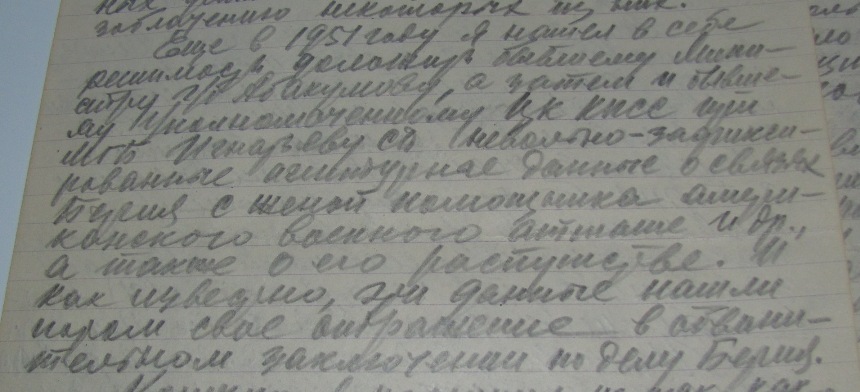 некоторых из них.
Еще в 1951 году я нашел в себе
решимость доложить бывшему мини-
стру ГБ Абакумову, а затем и бывше-
му уполномоченному ЦК КПСС при
МГБ Игнатьеву СД невольно-зафикси-
рованные агентурные данные о связях
Берия с женой помощника амери-
канского военного атташе и др.,
а также о его распутстве. И
как известно, эти данные нашли
потом свое отражение в обвини-
тельном заключении по делу Берия.